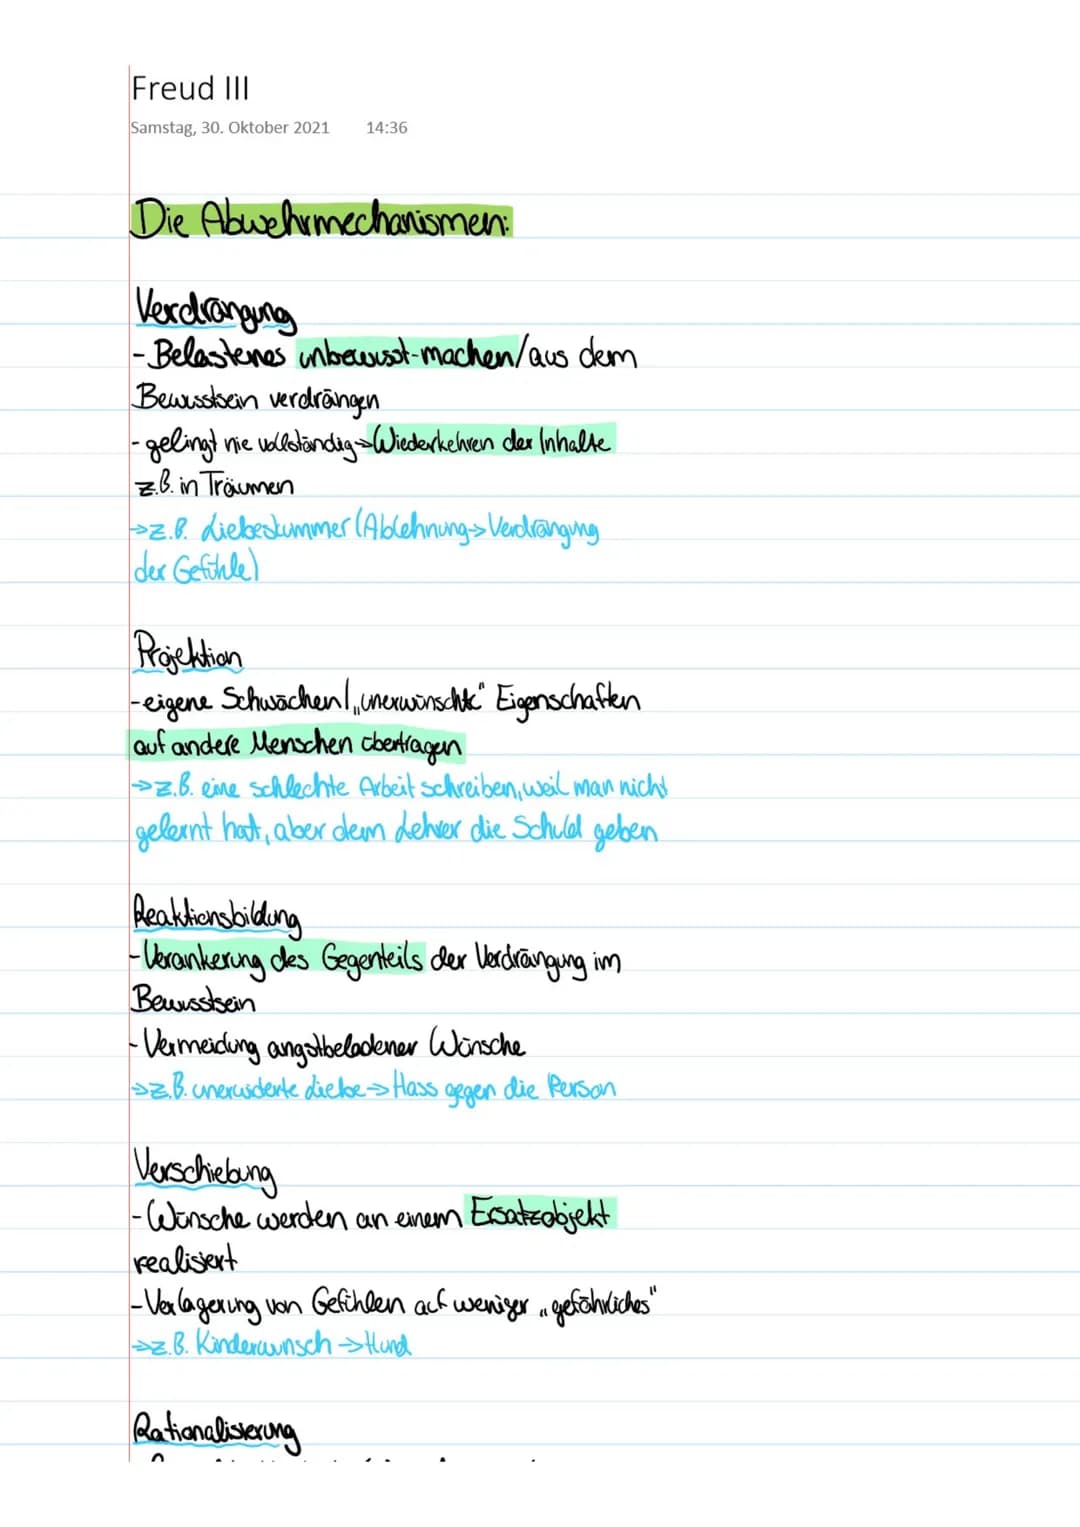 Freud III
Samstag, 30. Oktober 2021 14:36
Die Abwehrmechanismen:
Verdrängung
- Belastenes unbewusst-machen/aus dem
Bewusstsein verdrängen
- gelingt nie vollständig→Wiederkehren der Inhalte
z.B. in Träumen
→z.B. Liebeskummer (Ablehnung→Verdrängung
der Gefühle)
Projektion
-eigene Schwächen/„unerwünschte" Eigenschaften
auf andere Menschen übertragen
→z.B. eine schlechte Arbeit schreiben, weil man nicht
gelernt hat, aber dem Lehrer die Schuld geben
Reaktionsbildung
-Verankerung des Gegenteils der Verdrängung im
Bewusstsein
- Vermeidung angstbeladener Wünsche
→z.B. unerwiderte Liebe→Hass gegen die Person
Verschiebung
- Wünsche werden an einem Ersatzobjekt
realisiert
-Verlagerung von Gefühlen auf weniger „gefährliches"
→z.B. Kinderwunsch→Hund
Rationalisierung